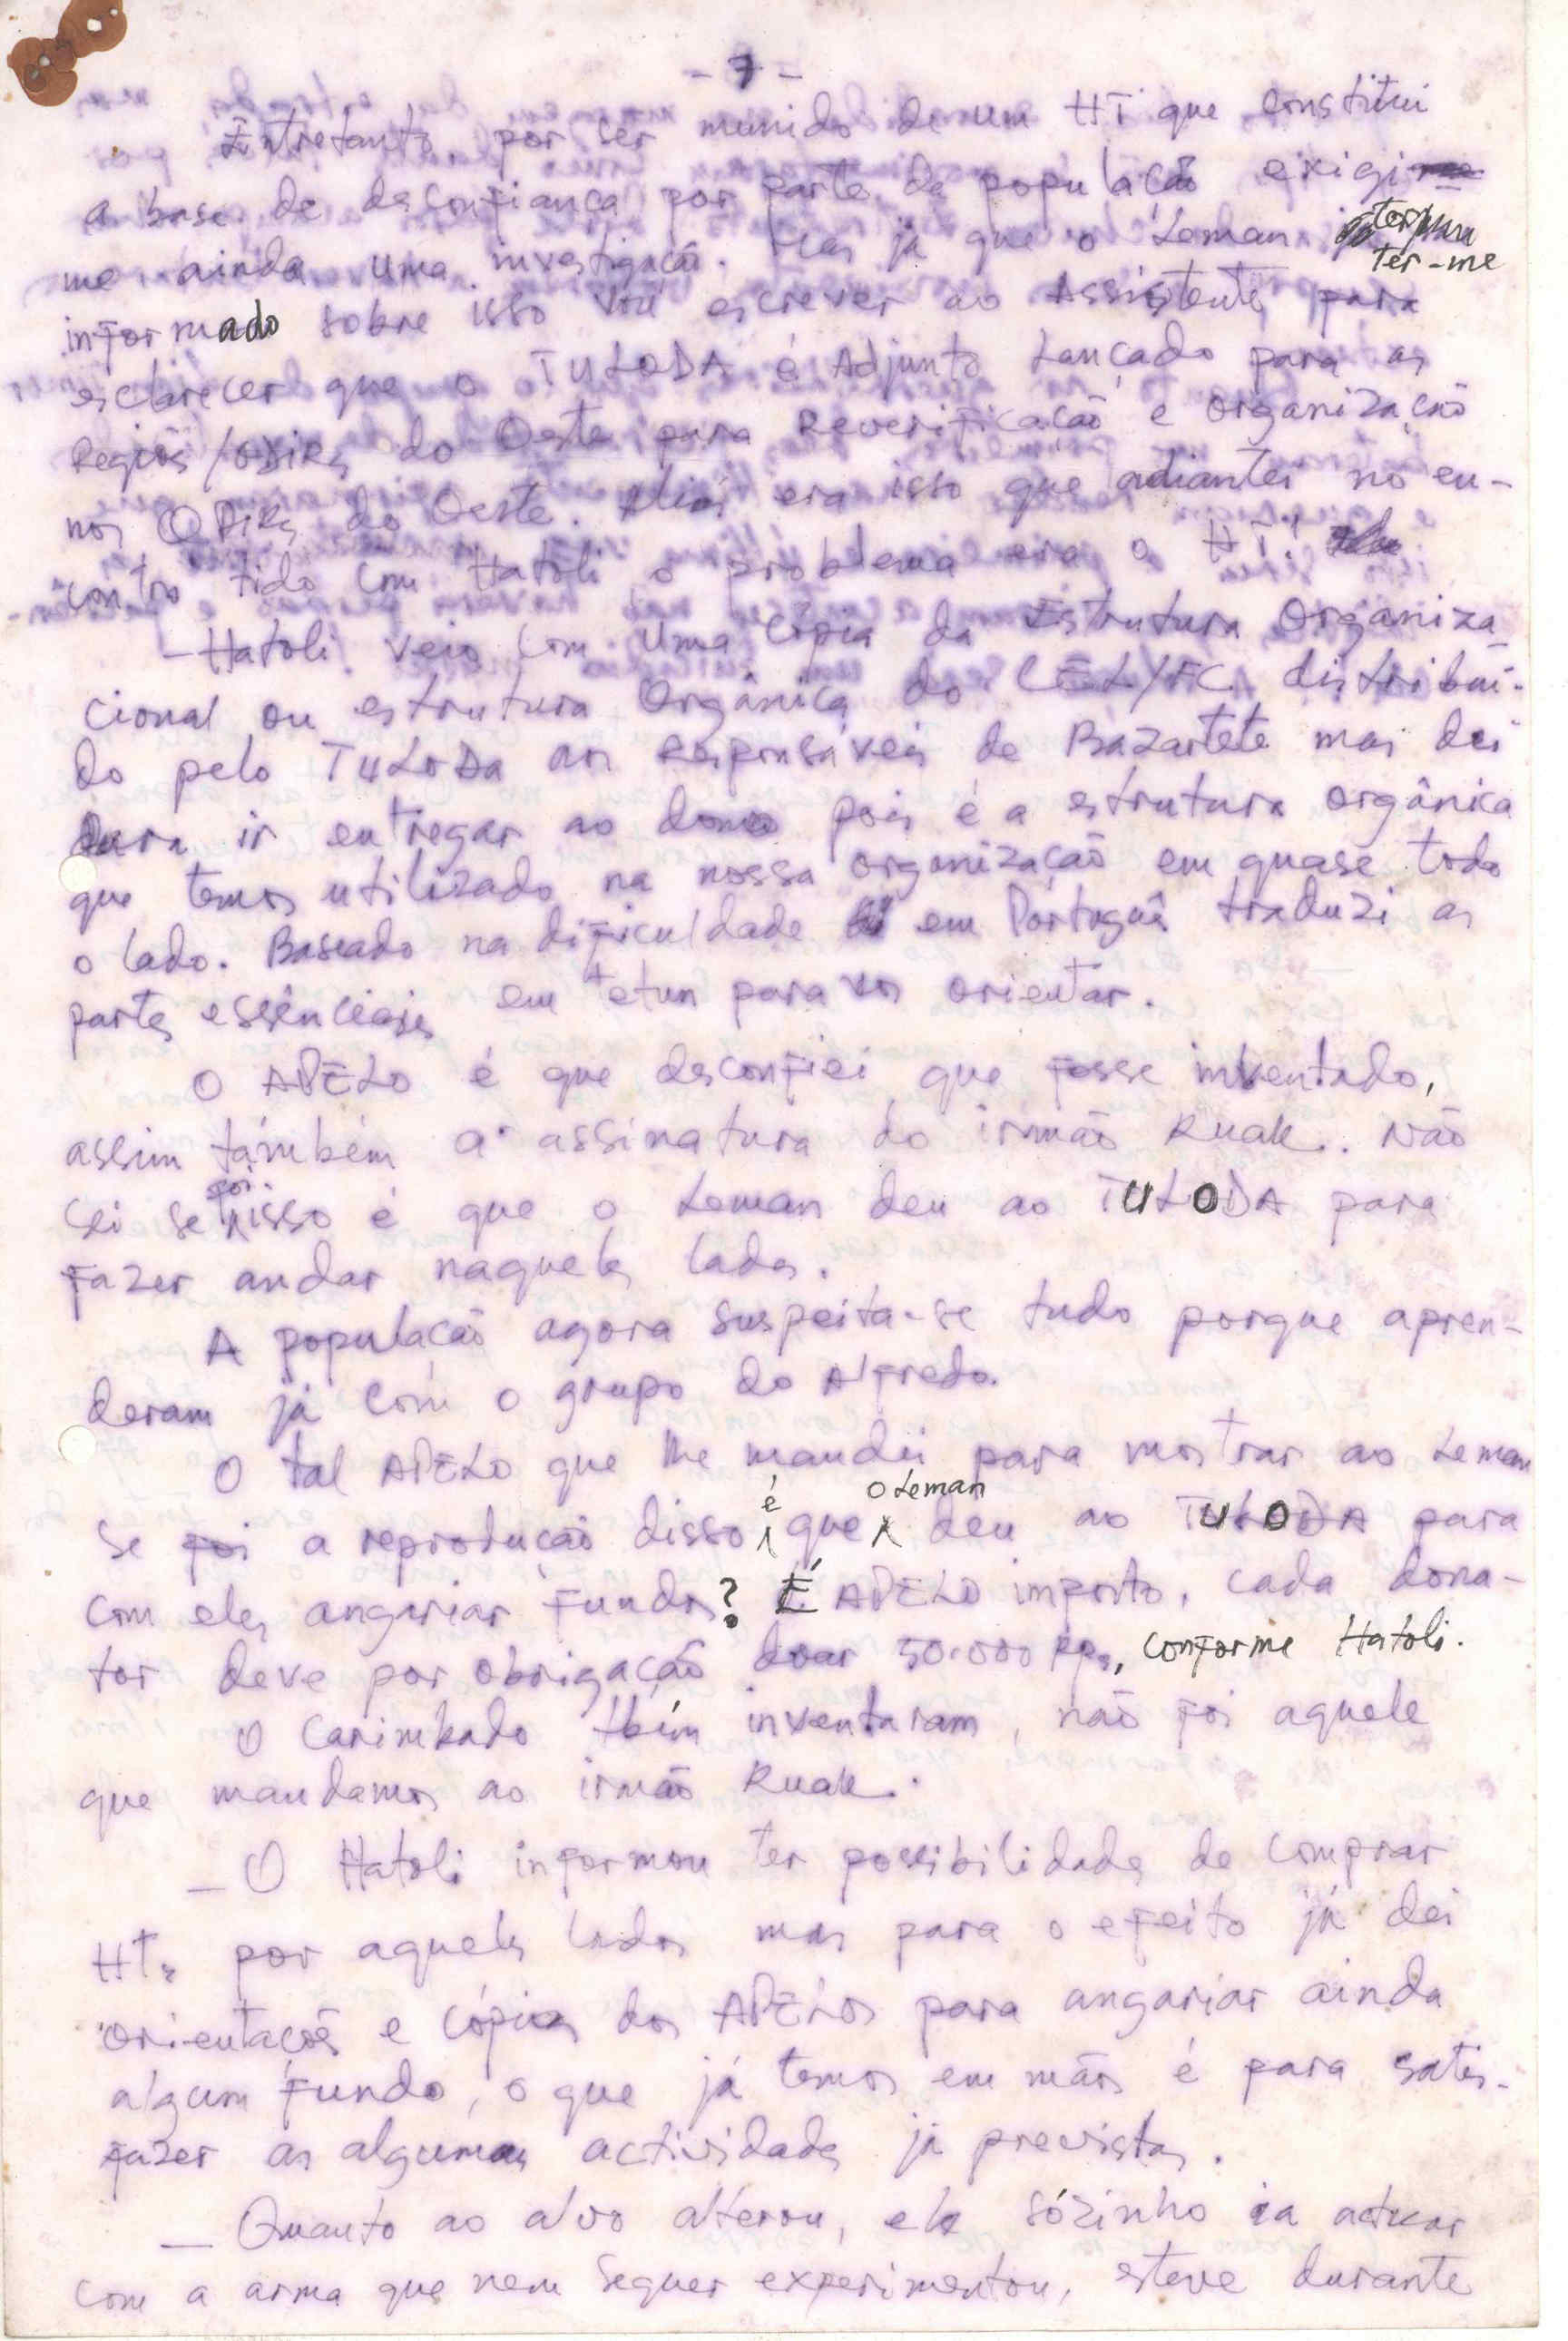 - 7 -
Entretanto por ser munido de um HT que constitui
a base de desconfiança por parte da população exigi
me ainda uma investigação. Mas já que o Leman
ter-me
informado sobre isso vou escrever ao Assistente para
esclarecer que o TULODA é Adjunto Lançado para as
Regiõs/ODIRs do Oeste para Reverificação e organização
nos ODIRs do Oeste. Aliás era isso que adiantei no en-
contro tido com Hatoli o problema era o HT!
- Hatoli veio com uma cópia da Estrutura Organiza-
cional ou estrutura Orgânica do CEL/FC distribuí-
do pelo TULODA aos Responsáveis de Bazartete mas dei
para ir entregar ao dono pois é a estrutura orgânica
que temos utilizado na nossa organização em quase todo
o lado. Baseado na dificuldade em Portuguê traduzi as
partes essênciais em tetun para vos orientar.
O APELO é que desconfiei que fosse inventado,
assim também a assinatura do irmão Ruak. Não
sei se foi isso é que o Leman deu ao TULODA para
fazer andar naqueles lados.
A população agora suspeita-se tudo porque apren-
deram já com o grupo do Alfredo.
O tal APELO que lhe mandei para mostrar ao Leman
se foi a reprodução disso é que o Leman deu ao TULODA para
com eles angariar fundos? É APELO imposto, cada dona-
tor deve por obrigação doar 50.000 Rps, conforme Hatoli.
O Carimbado tbém inventaram, não foi aquele
que mandamos ao irmão Ruak.
- O Hatoli informou ter possibilidades de comprar
HTs por aqueles lados mas para o efeito já dei
orientaçõs e cópias dos APELOS para angariar ainda
algum fundo, o que já temos em mãos é para satis-
fazer as algumas actividades já previstas.
- Quanto ao alvo alterou, ele sózinho ia actuar
com a arma que nem sequer experimentou, esteve durante